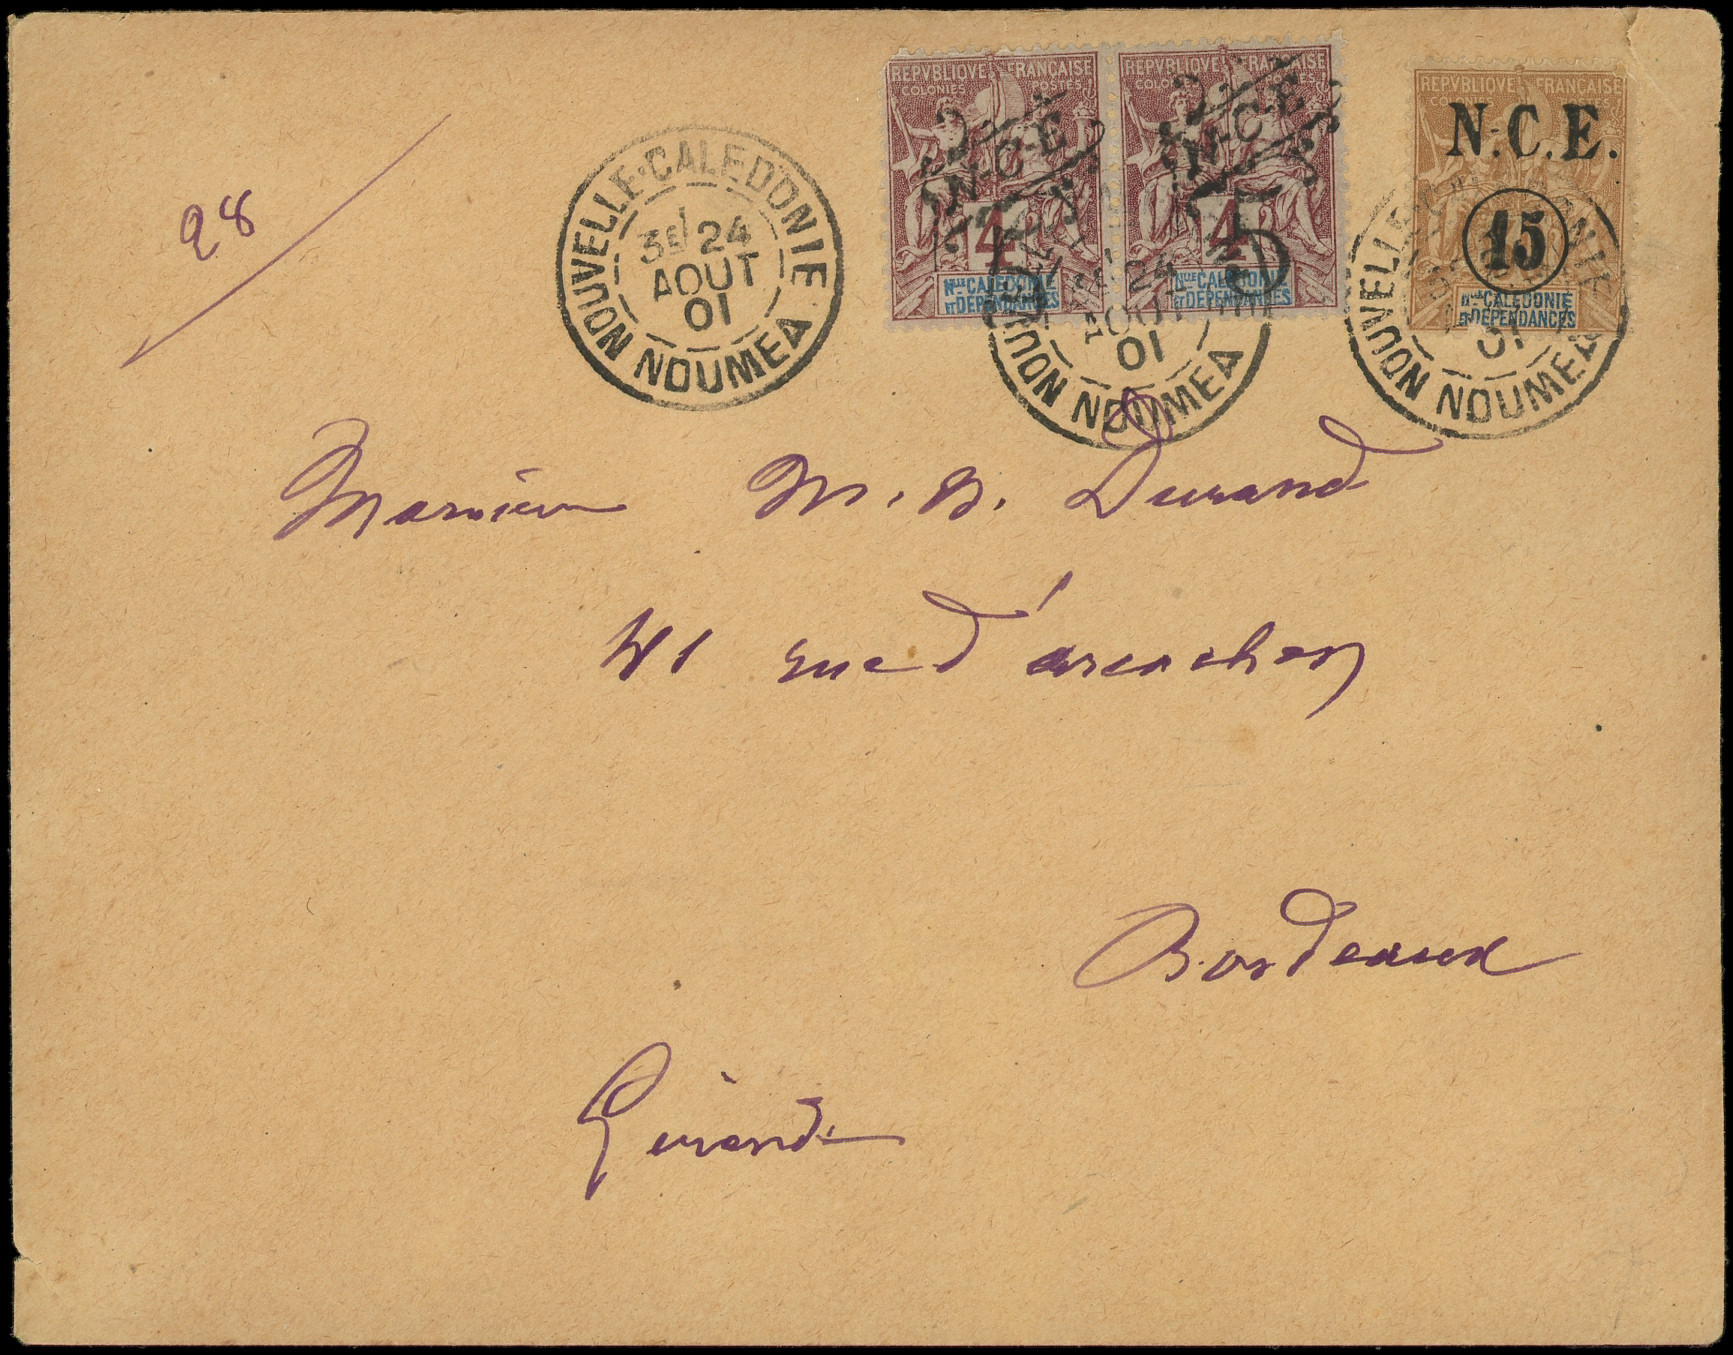 REPVBLIQVE FRANÇAISE
COLONIES POSTES
N-C-E
4
NLLE CALEDONIE
ET DEPENDANCES
REPVBLIQVE FRANÇAISE
COLONIES POSTES
N-C-E
5
4
NLLE CALEDONIE
ET DEPENDANCES
REPVBLIQVE FRANÇAISE
N.C.E.
15
NLLE CALEDONIE
ET DEPENDANCES
NOUVELLE-CALEDONIE
3E/24
AOUT
01
NOUMEA
24
AOUT
01
NOUMEA
NOUVELLE
01
NOUMEA
98
Monsieur M. B. Durand
41 rue d'arcachon
Bordeaux
Gironde